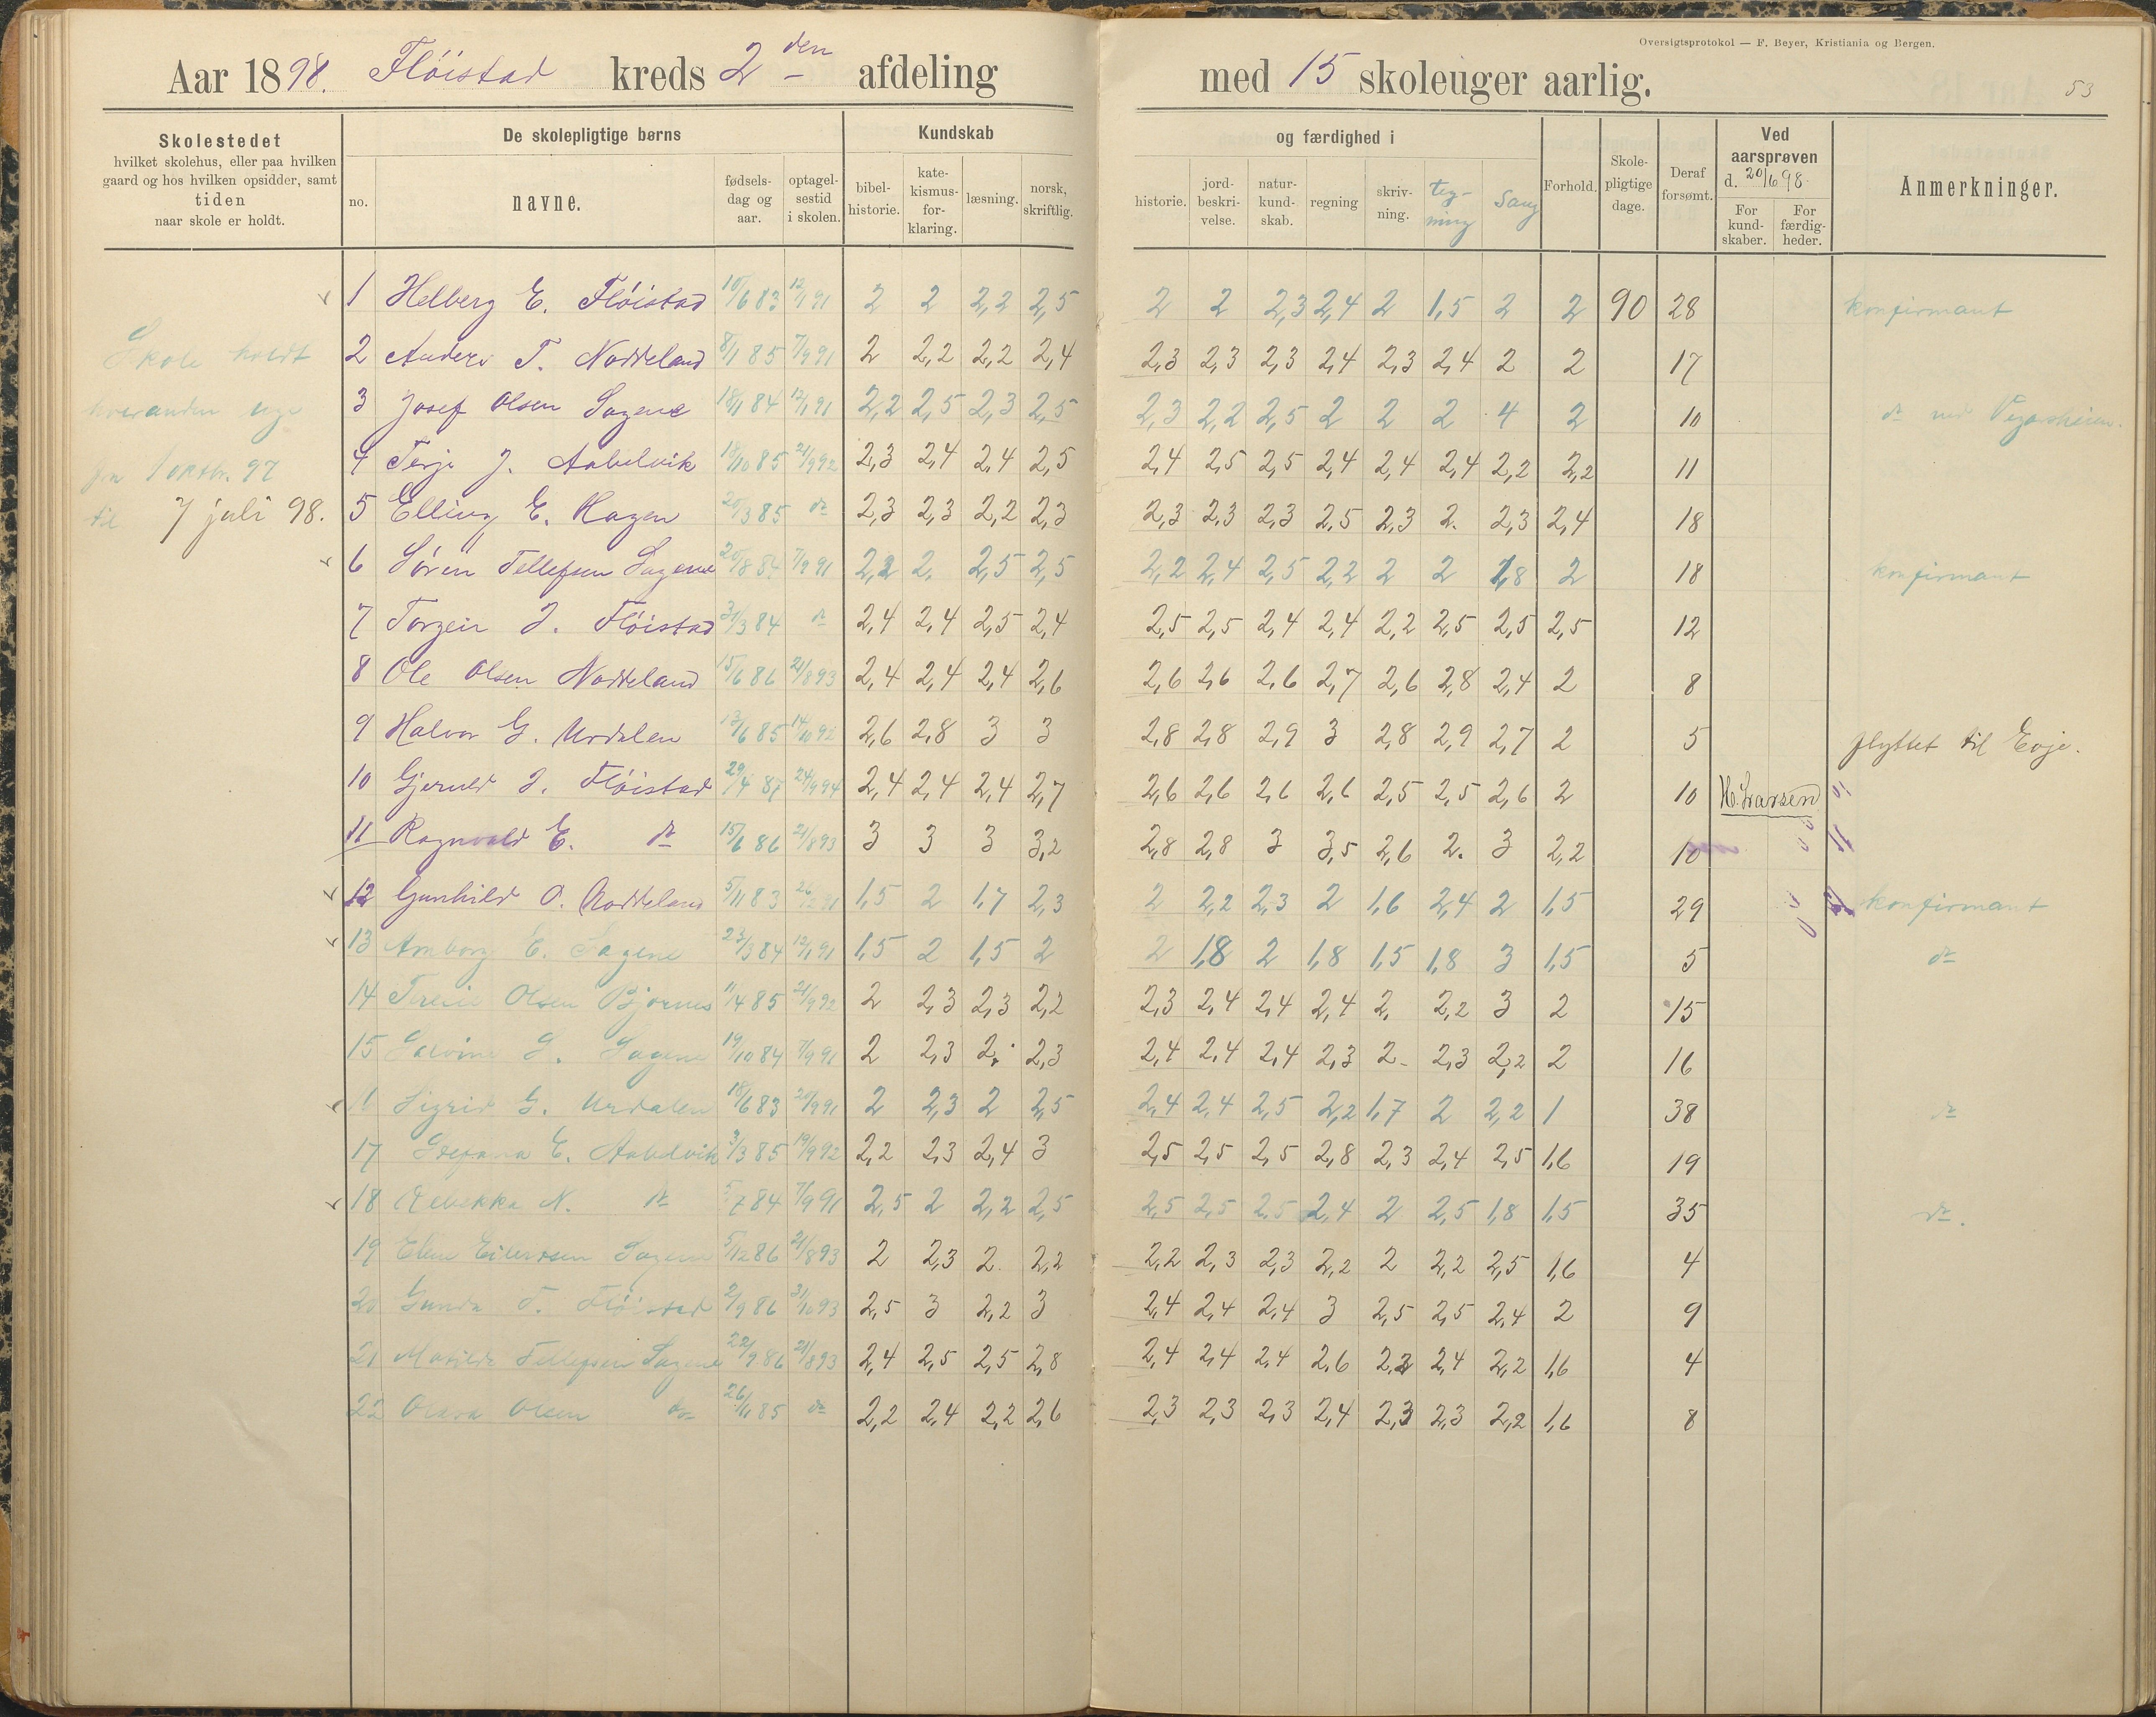 Oversigtsprotokol — F. Beyer, Kristiania og Bergen.
53
Aar 1898. Flöistad kreds 2den afdeling med 15 skoleuger aarlig.
Skolestedet
hvilket skolehus, eller paa hvilken
gaard og hos hvilken opsidder, samt
tiden
naar skole er holdt.
De skolepligtige børns
no. navne. fødsels-dag og aar. optagel-sestid i skolen.
Kundskab og færdighed i
bibel-historie. kate-kismus-for-klaring. læsning. norsk, skriftlig.
historie. jord-beskri-velse. natur-kund-skab. regning skriv-ning. teg-ning Sang
Forhold. Skole-pligtige dage. Deraf forsømt.
Ved aarsprøven d. 20/6 98.
For kund-skaber. For færdig-heder.
Anmerkninger.
Skole holdt
hveranden uge
fra 1 oktbr. 97
til 7 juli 98.
1 Helberg E. Flöistad 10/6 83 12/1 91 2 2 2,2 2,5 2 2 2,3 2,4 2 1,5 2 2 90 28 konfirmant
2 Anders T. Noddeland 8/1 85 7/9 91 2 2,2 2,2 2,4 2,3 2,3 2,3 2,4 2,3 2,4 2 2 17
3 Josef Olsen Sagene 18/1 84 12/1 91 2,2 2,5 2,3 2,5 2,3 2,2 2,5 2 2 2 4 2 10 do ved Vegasheien.
4 Terje J. Aabelvik 18/10 85 21/9 92 2,3 2,4 2,4 2,5 2,4 2,5 2,5 2,4 2,4 2,4 2,2 2,2 11
5 Elling E. Hagen 20/3 85 do 2,3 2,3 2,2 2,3 2,3 2,3 2,3 2,5 2,3 2. 2,3 2,4 18
6 Sören Tellefsen Sagene 20/8 84 7/9 91 2,2 2. 2,5 2,5 2,2 2,4 2,5 2,2 2 2 1,8 2 18 konfirmant
7 Torgeir J. Flöistad 31/3 84 do 2,4 2,4 2,5 2,4 2,5 2,5 2,4 2,4 2,2 2,5 2,5 2,5 12
8 Ole Olsen Noddeland 15/6 86 21/8 93 2,4 2,4 2,4 2,6 2,6 2,6 2,6 2,7 2,6 2,8 2,4 2 8
9 Halvor G. Urdalen 13/6 85 14/10 92 2,6 2,8 3 3 2,8 2,8 2,9 3 2,8 2,9 2,7 2 5 flyttet til Evje.
10 Gjeruld J. Flöistad 29/4 87 24/9 94 2,4 2,4 2,4 2,7 2,6 2,6 2,6 2,6 2,5 2,5 2,6 2 10 H. Larsen
11 Ragnvald E. do 15/6 86 21/8 93 3 3 3 3,2 2,8 2,8 3 3,5 2,6 2. 3 2,2 10
12 Gunhild O. Noddeland 5/11 83 1,5 2 1,7 2,3 2 2,2 2,3 2 1,6 2,4 2 1,5 29 konfirmant
13 Amborg E. Sagene 23/3 84 12/1 91 1,5 2 1,5 2 2 1,8 2 1,8 1,5 1,8 3 1,5 5 do
14 Olsen Bjørnes 11/4 85 21/9 92 2 2,3 2,3 2,2 2,3 2,4 2,4 2,4 2. 2,2 3 2 15
15 G. Sagene 19/10 84 7/9 91 2 2,3 2. 2,3 2,4 2,4 2,4 2,3 2 2,3 2,2 2 16
16 Sigrid G. Urdalen 18/6 83 20/9 91 2 2,3 2 2,5 2,4 2,4 2,5 2,2 1,7 2 2,2 1 38 do
17 Gurine E. Aabelvik 3/3 85 19/9 92 2,2 2,3 2,4 3 2,5 2,5 2,5 2,8 2,3 2,4 2,5 1,6 19
18 Rebekka N. do 5/7 84 7/9 91 2,5 2 2,2 2,5 2,5 2,5 2,5 2,4 2 2,5 1,8 1,5 35 do.
19 Eilertsen Sagene 5/12 86 21/8 93 2 2,3 2 2,2 2,2 2,3 2,3 2,2 2 2,2 2,5 1,6 4
20 Gunda T. Flöistad 2/9 86 31/10 93 2,5 3 2,2 3 2,4 2,4 2,4 3 2,5 2,5 2,4 2 9
21 Matilde Tellefsen Sagene 22/9 86 21/8 93 2,4 2,5 2,5 2,8 2,4 2,4 2,4 2,6 2,3 2,4 2,2 1,6 4
22 Olava Olsen do 26/11 85 do 2,2 2,4 2,2 2,6 2,3 2,3 2,3 2,4 2,3 2,3 2,2 1,6 8